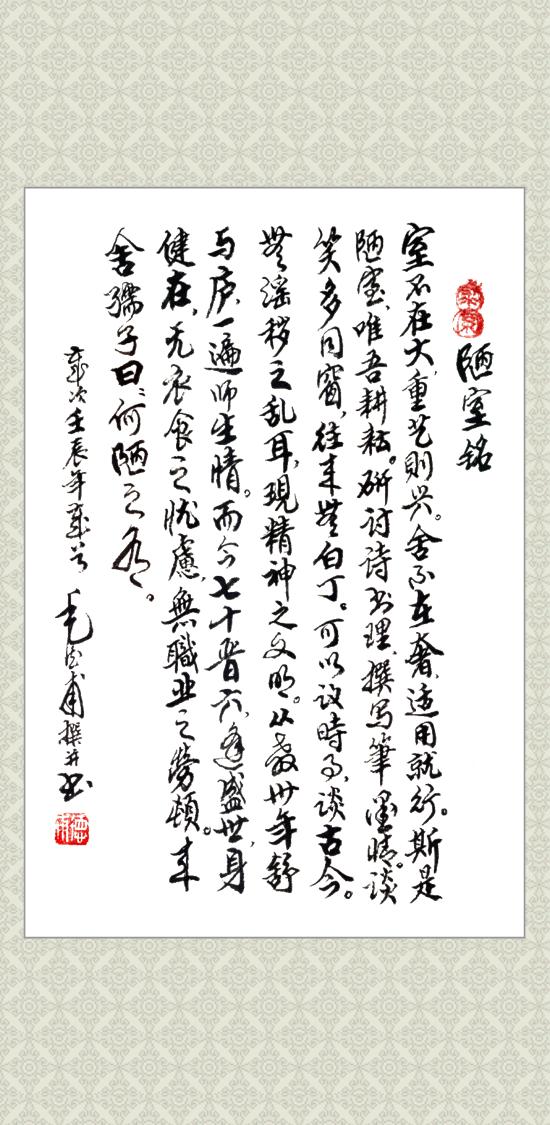 陋室铭
室不在大，重艺则兴。舍不在奢，适用就行。斯是
陋室，唯吾耕耘。研讨诗书理，撰写筆墨情。谈
笑多同窗，往来無白丁。可以议時事，谈古今。
無淫秽之乱耳，現精神之文明。从教卅年舒
与庐，一遍师生情。而今七十晋六，逢盛世，身
健在，无衣食之忧慮，無職业之劳頓。来
舍孺子曰：何陋之有。
歲次壬辰年 毛 甫撰并书